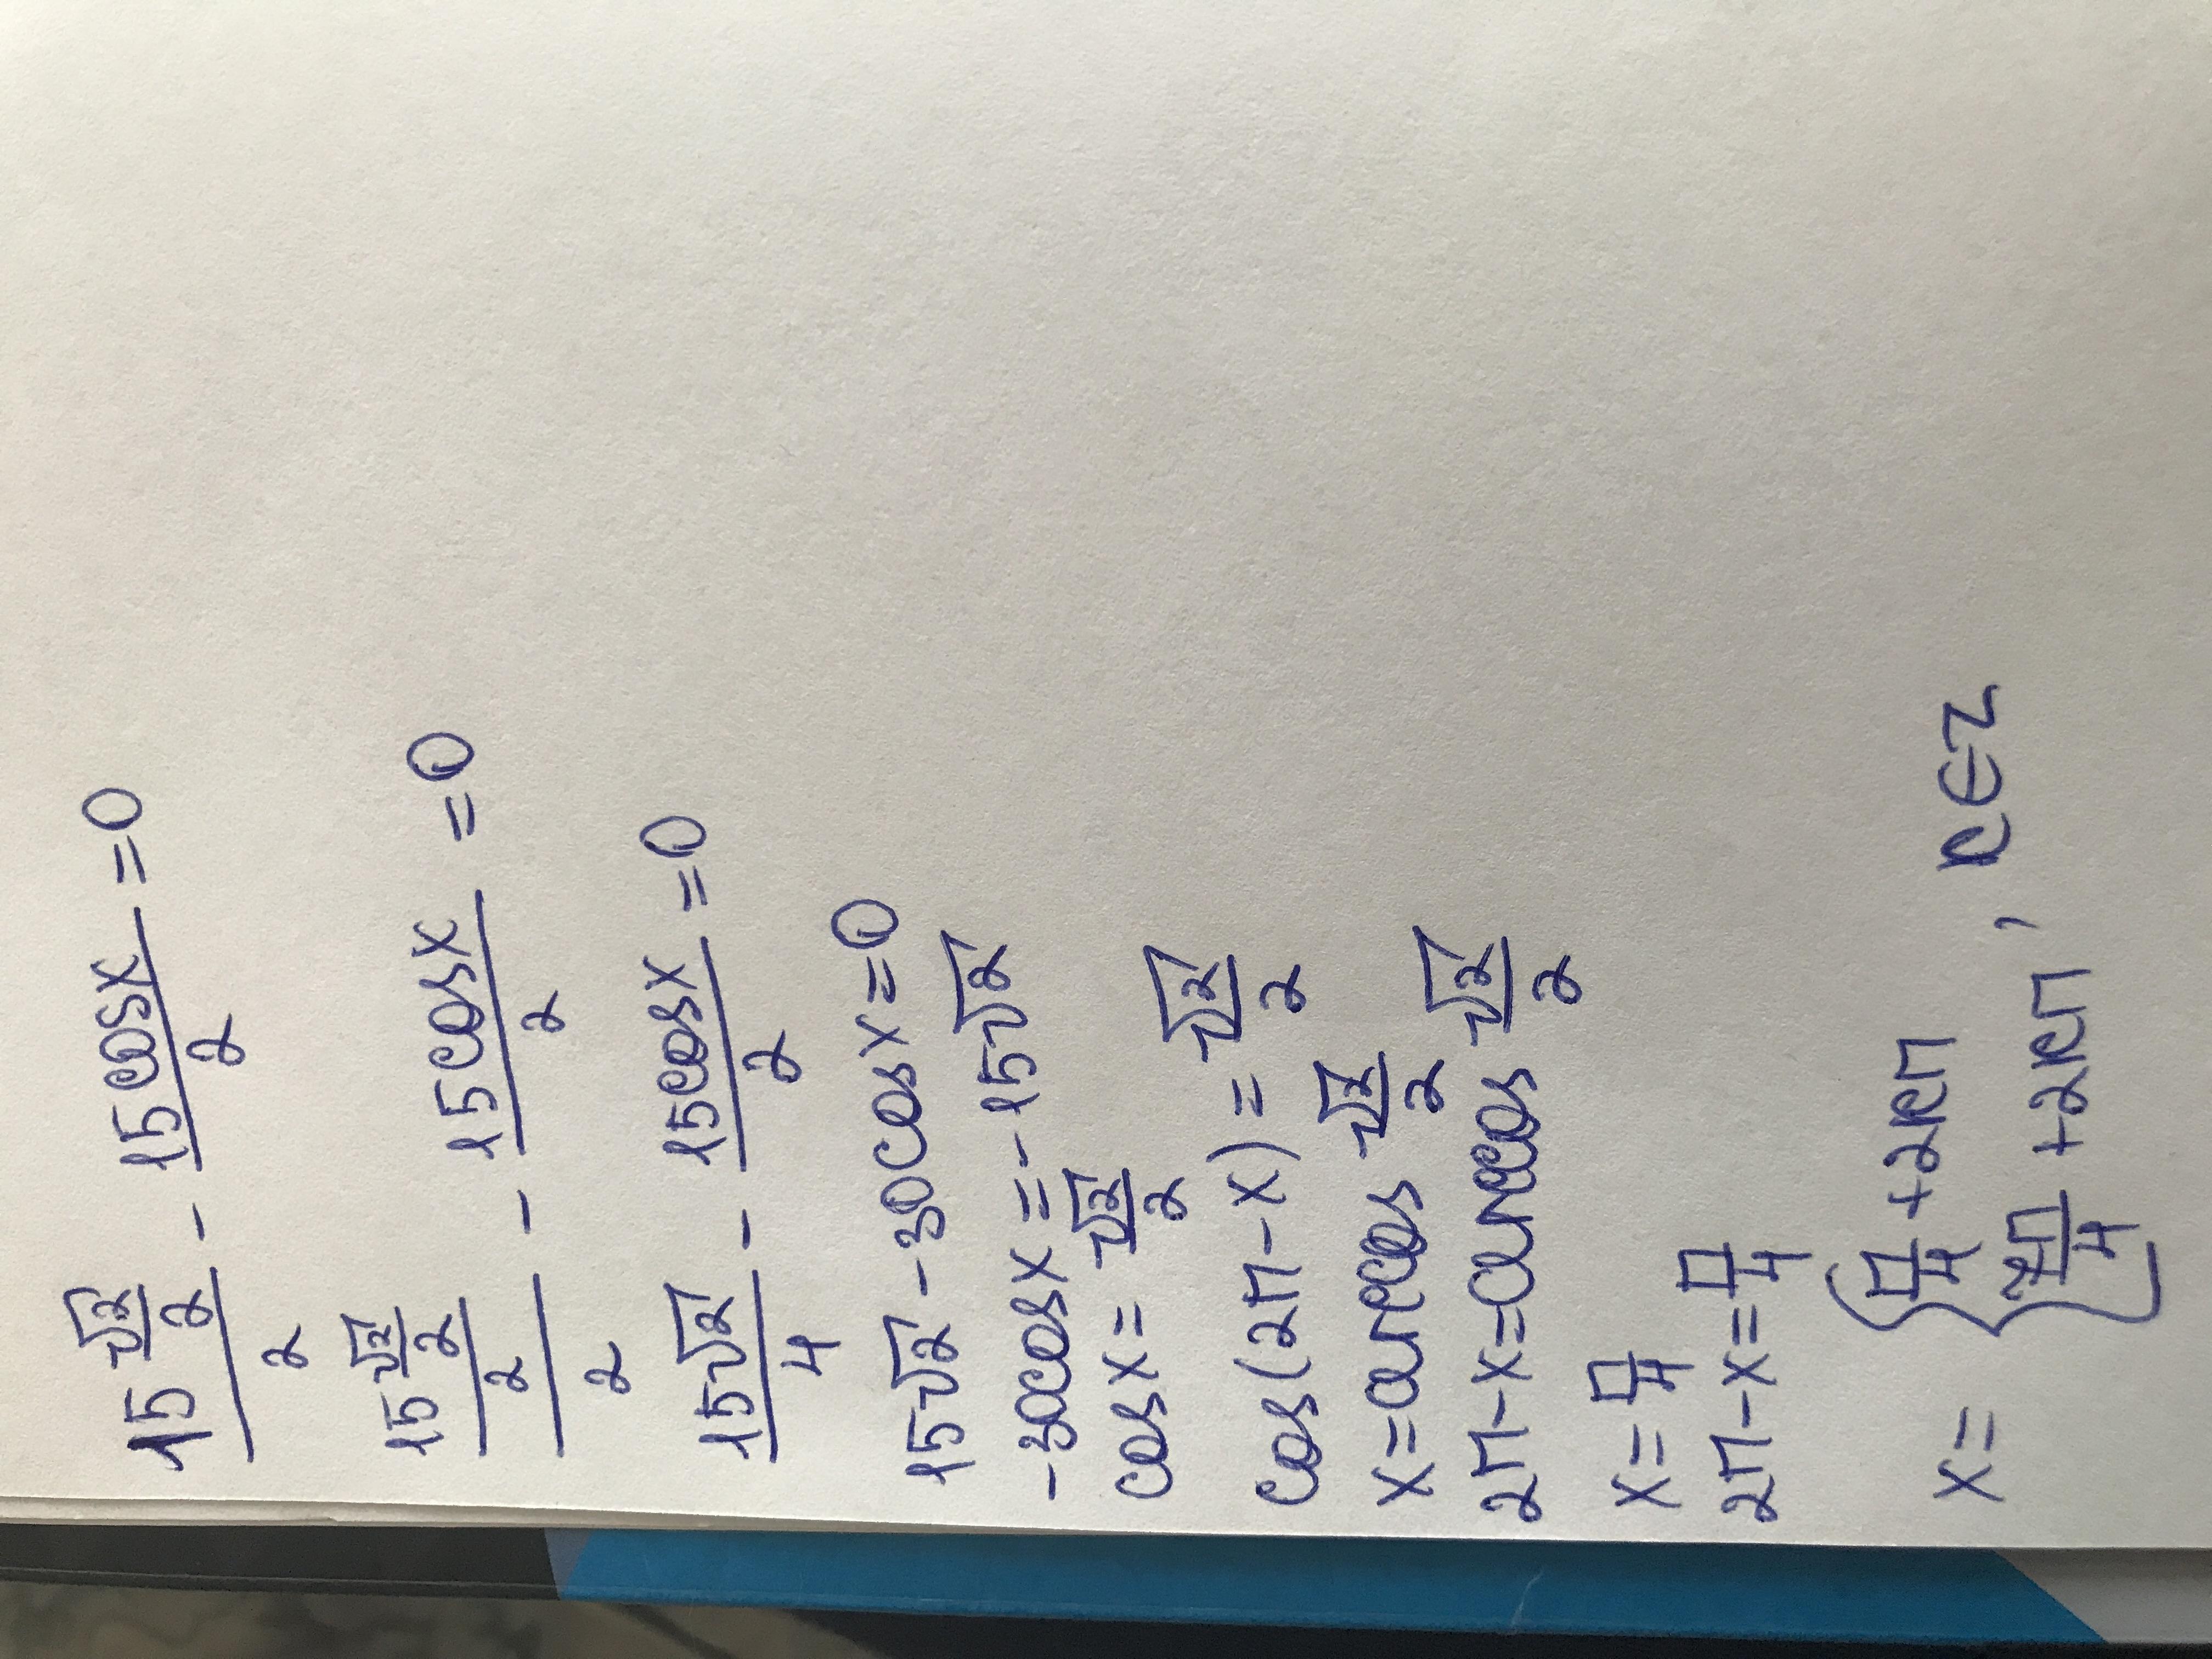 15 √2/2 / 2 - 15cosx/2 = 0
15 √2/2 / 2 / 2 - 15cosx/2 = 0
15√2/4 - 15cosx/2 = 0
15√2 - 30cosx = 0
-30cosx = -15√2
cosx = √2/2
cos(2π-x) = √2/2
x = arccos √2/2
2π-x = arccos √2/2
x = π/4
2π-x = π/4
x = { π/4 + 2kπ
7π/4 + 2kπ , k∈Z